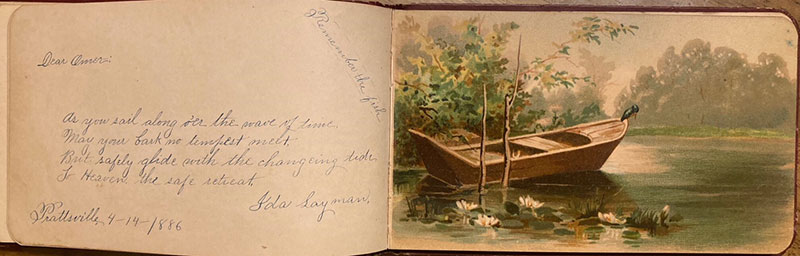 Remember the fish
Dear Omer:
As you sail along o'er the wave of time,
May your bark no tempest meet.
But safely glide with the changeing tide.
To Heaven the safe retreat.
Ida Layman,
Prattsville, 4-14-1886